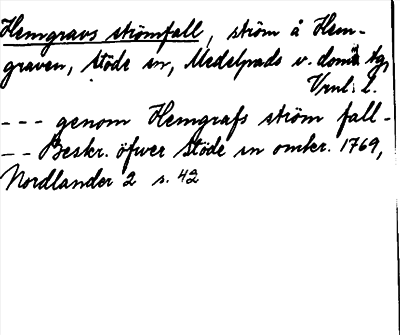 Hemgravs strömfall, ström å Hem-
graven, Stöde sn, Medelpads v. doms tg,
Vrnl. l.
--- genom Hemgrafs ström fall -
-- Beskr. öfwer Stöde sn omkr. 1769,
Nordlander 2 s. 42